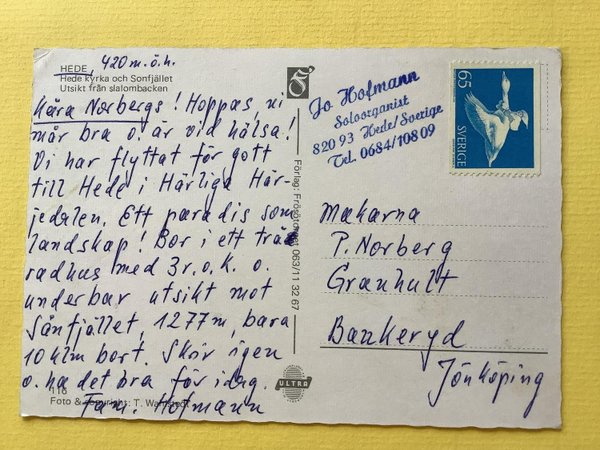 HEDE, 420 m.ö.h.
Hede kyrka och Sonfjället
Utsikt från slalombacken
Kära Norbergs! Hoppas, ni
mår bra o. är vid hälsa!
Vi har flyttat för gott
till Hede i Härliga Här-
jedalen. Ett paradis som
landskap! Bor i ett trä
radhus med 3 r.o.k. o.
underbar utsikt mot
Sånfjället, 1277m, bara
10 klm bort. Skriv igen
o. ha det bra för idag.
Fam. Hofmann
116
Foto & copyright: T.
Förlag: 063/11 32 67
ULTRA
Jo Hofmann
Soloorganist
820 93 Hede/Sverige
Tel. 0684/10809
65
SVERIGE
Makarna
P. Norberg
Granhult
Bankeryd
Jönköping